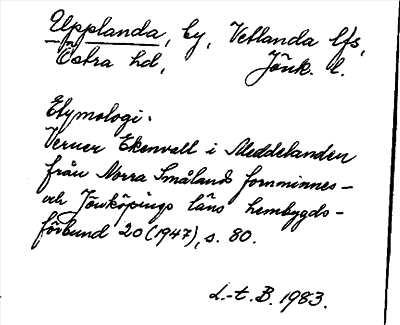 Upplanda, by, Vetlanda lfs,
Östra hd, Jönk. l.
Etymologi.
Verner Ekenvall i Meddelanden
från Norra Smålands fornminnes-
och Jönköpings läns hembygds-
förbund 20 (1947), s. 80.
L-t. B. 1983.